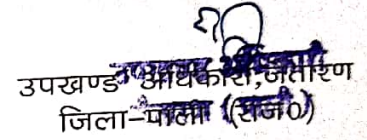 उपखण्ड अधिकारी, जैतारण
जिला-पाली (राज०)